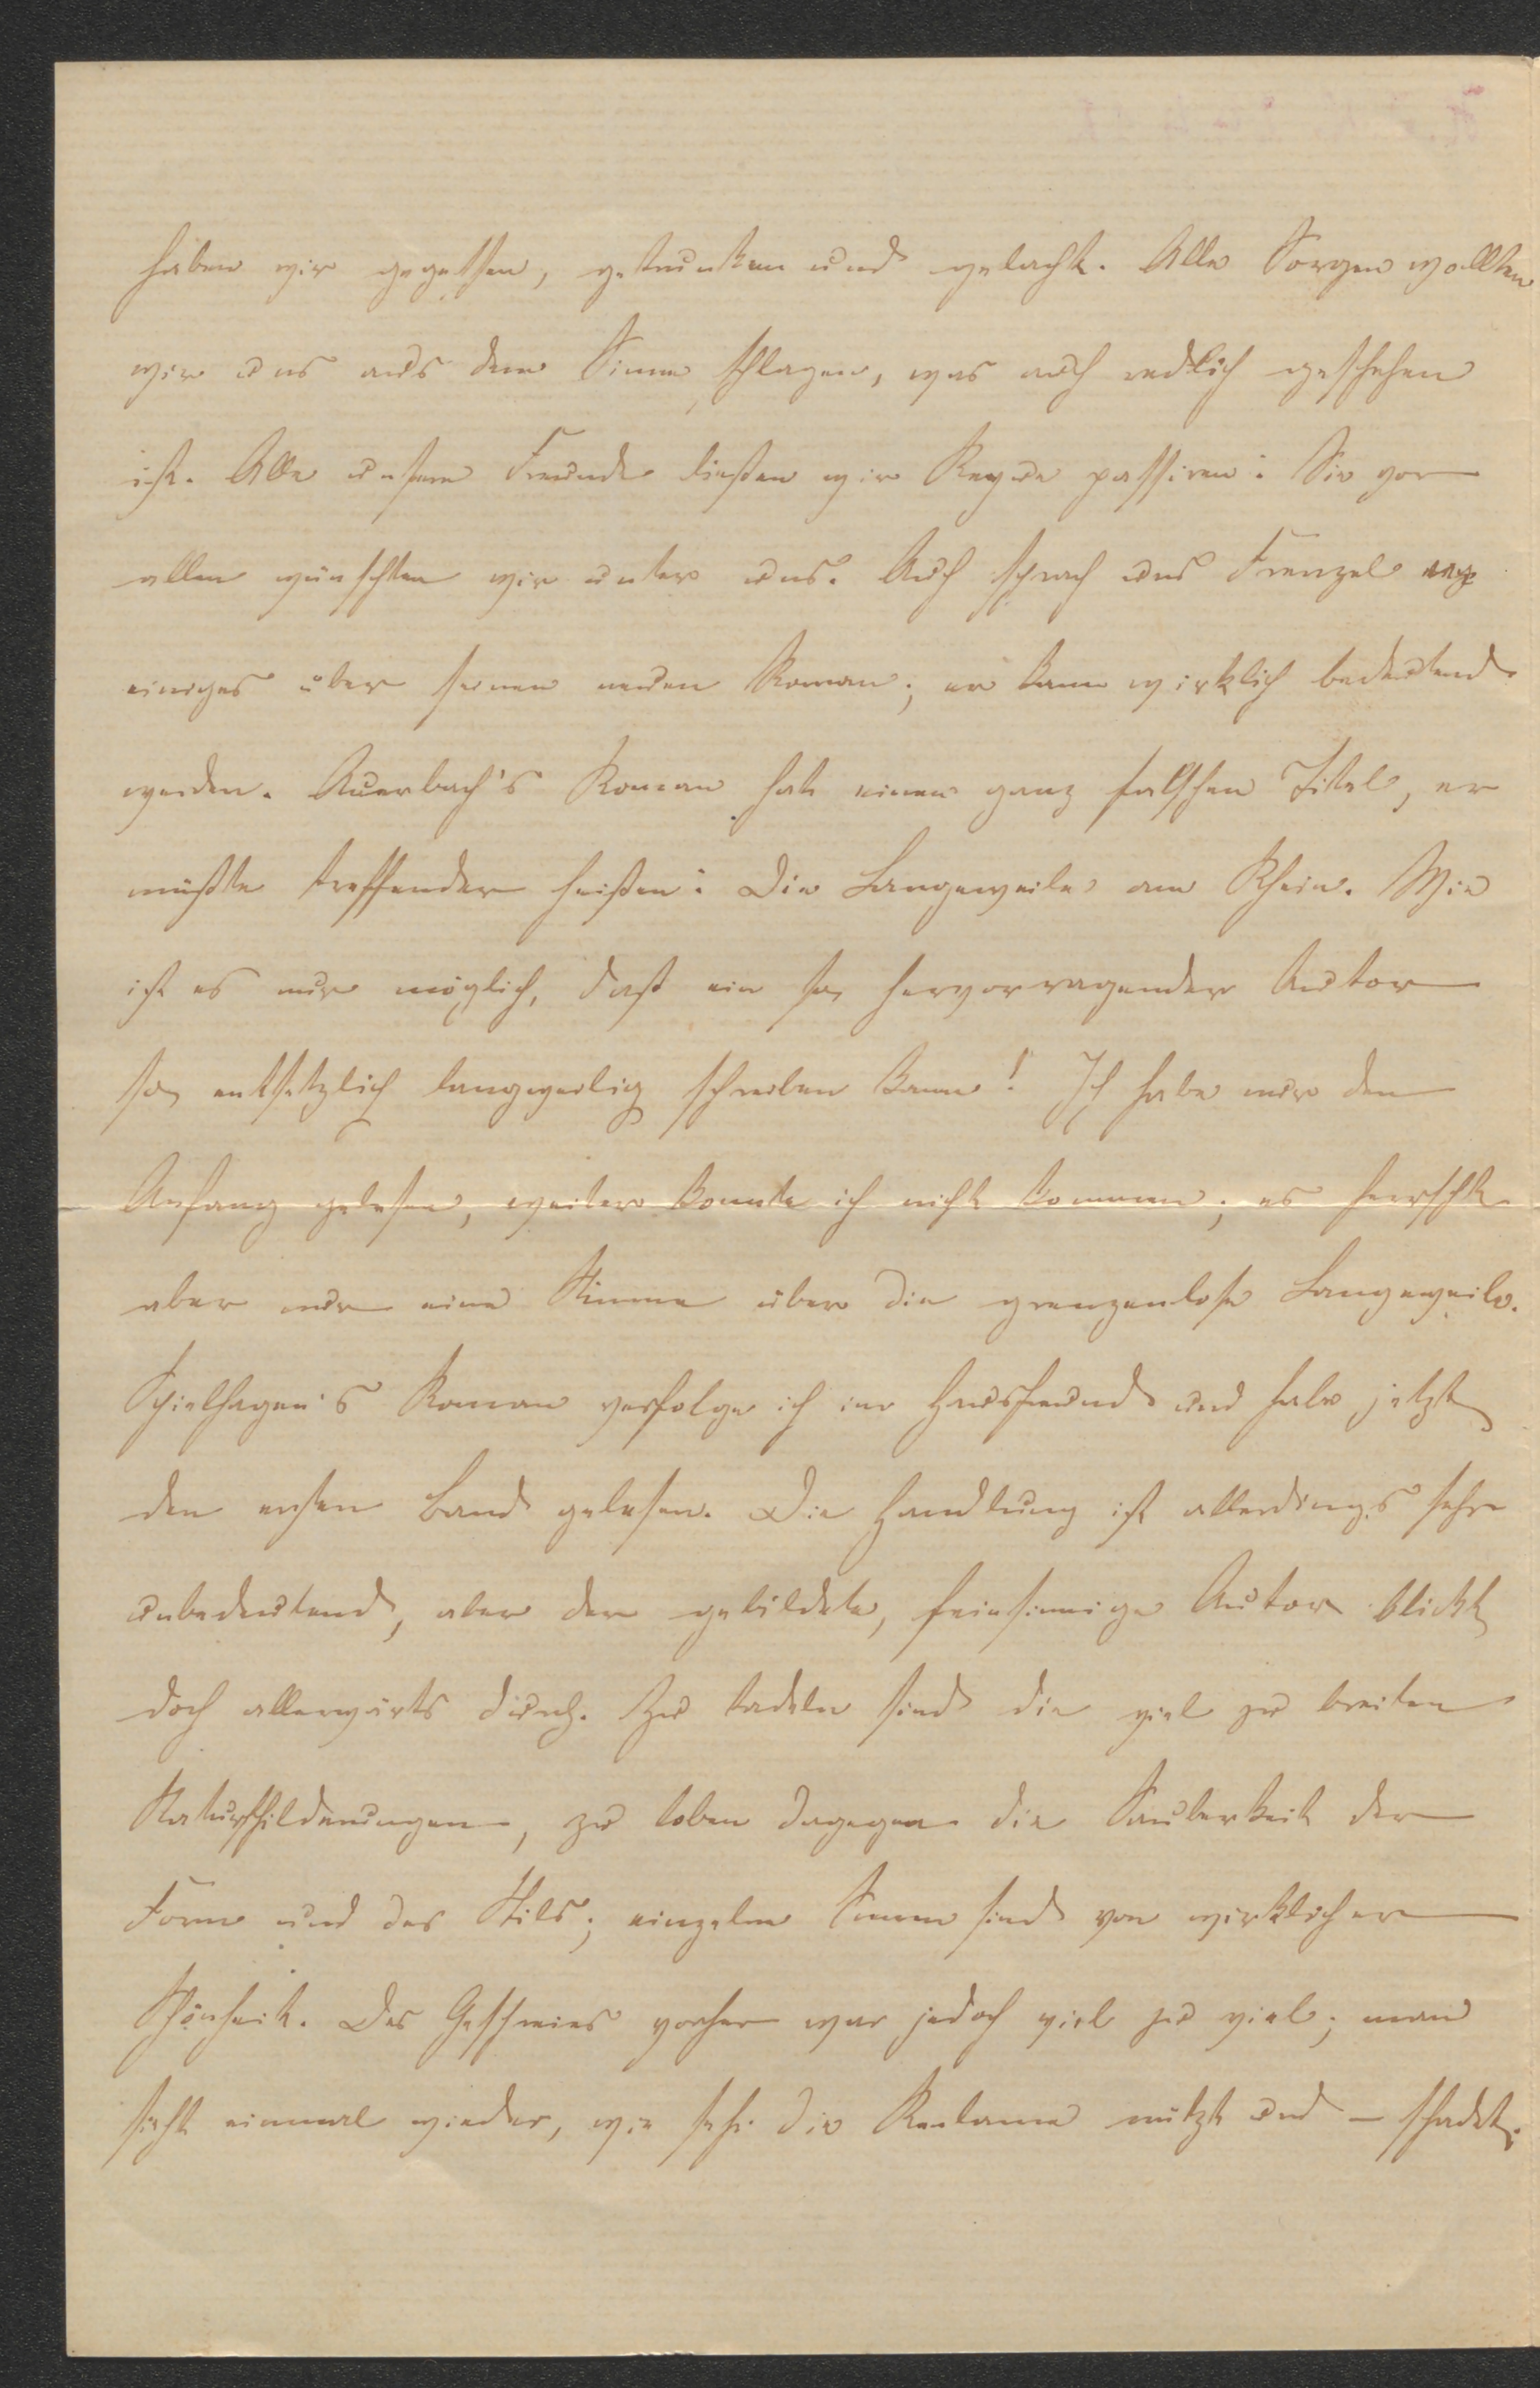 haben wir gegessen, getrunken und gelacht. Alle Sorgen wollten
wir uns aus dem Sinne schlagen, was auch redlich geschehen
ist. Alle unsere Freunde ließen wir Revue passiren: Sie vor
allen wünschten wir unter uns. Auch sprach uns Frenzel
einiges über seinen neuen Roman; er kann wirklich bedeutend
werden. Auerbach's Roman hat einen ganz falschen Titel, er
müßte treffender heißen: Die Langeweile am Rhein. Wie
ist es nur möglich, daß ein so hervorragender Autor
so entsetzlich langweilig schreiben kann! Ich habe nur den
Anfang gelesen, weiter konnte ich nicht kommen; es herrscht
aber nur eine Stimme über die grenzenlose Langeweile.
Spielhagen's Roman verfolge ich im Hausfreund und habe jetzt
den ersten Band gelesen. Die Handlung ist allerdings sehr
unbedeutend, aber der gebildete, feinsinnige Autor blickt
doch allerwärts durch. Zu tadeln sind die viel zu breiten
Naturschilderungen, zu loben dagegen die Sauberkeit der
Form und des Stils; einzelne Scenen sind von wirklicher
Schönheit. Das Geschreies vorher war jedoch viel zu viel; man
sieht einmal wieder, wie sehr die Reclame nützt und – schadet.